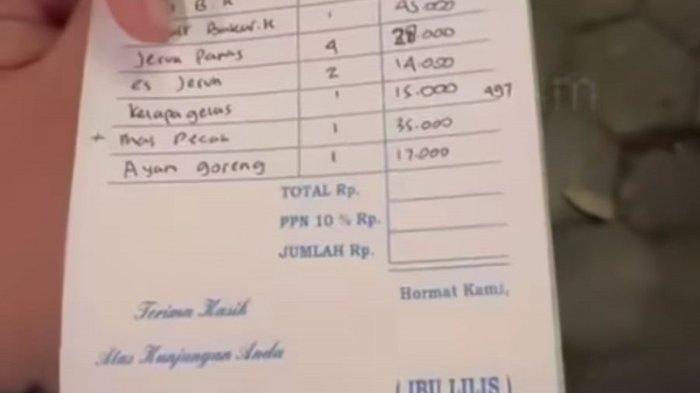 B. K 1 45.000
Bakar. K 1 28.000
Jeruk Panas 4 28.000
es Jeruk 2 14.000
Kelapa gelas 1 15.000 497
+ Mas Pecak 1 35.000
Ayam goreng 1 17.000
TOTAL Rp.
PPN 10 % Rp.
JUMLAH Rp.
Hormat Kami,
Terima Kasih
Atas Kunjungan Anda
( IBU LILIS )